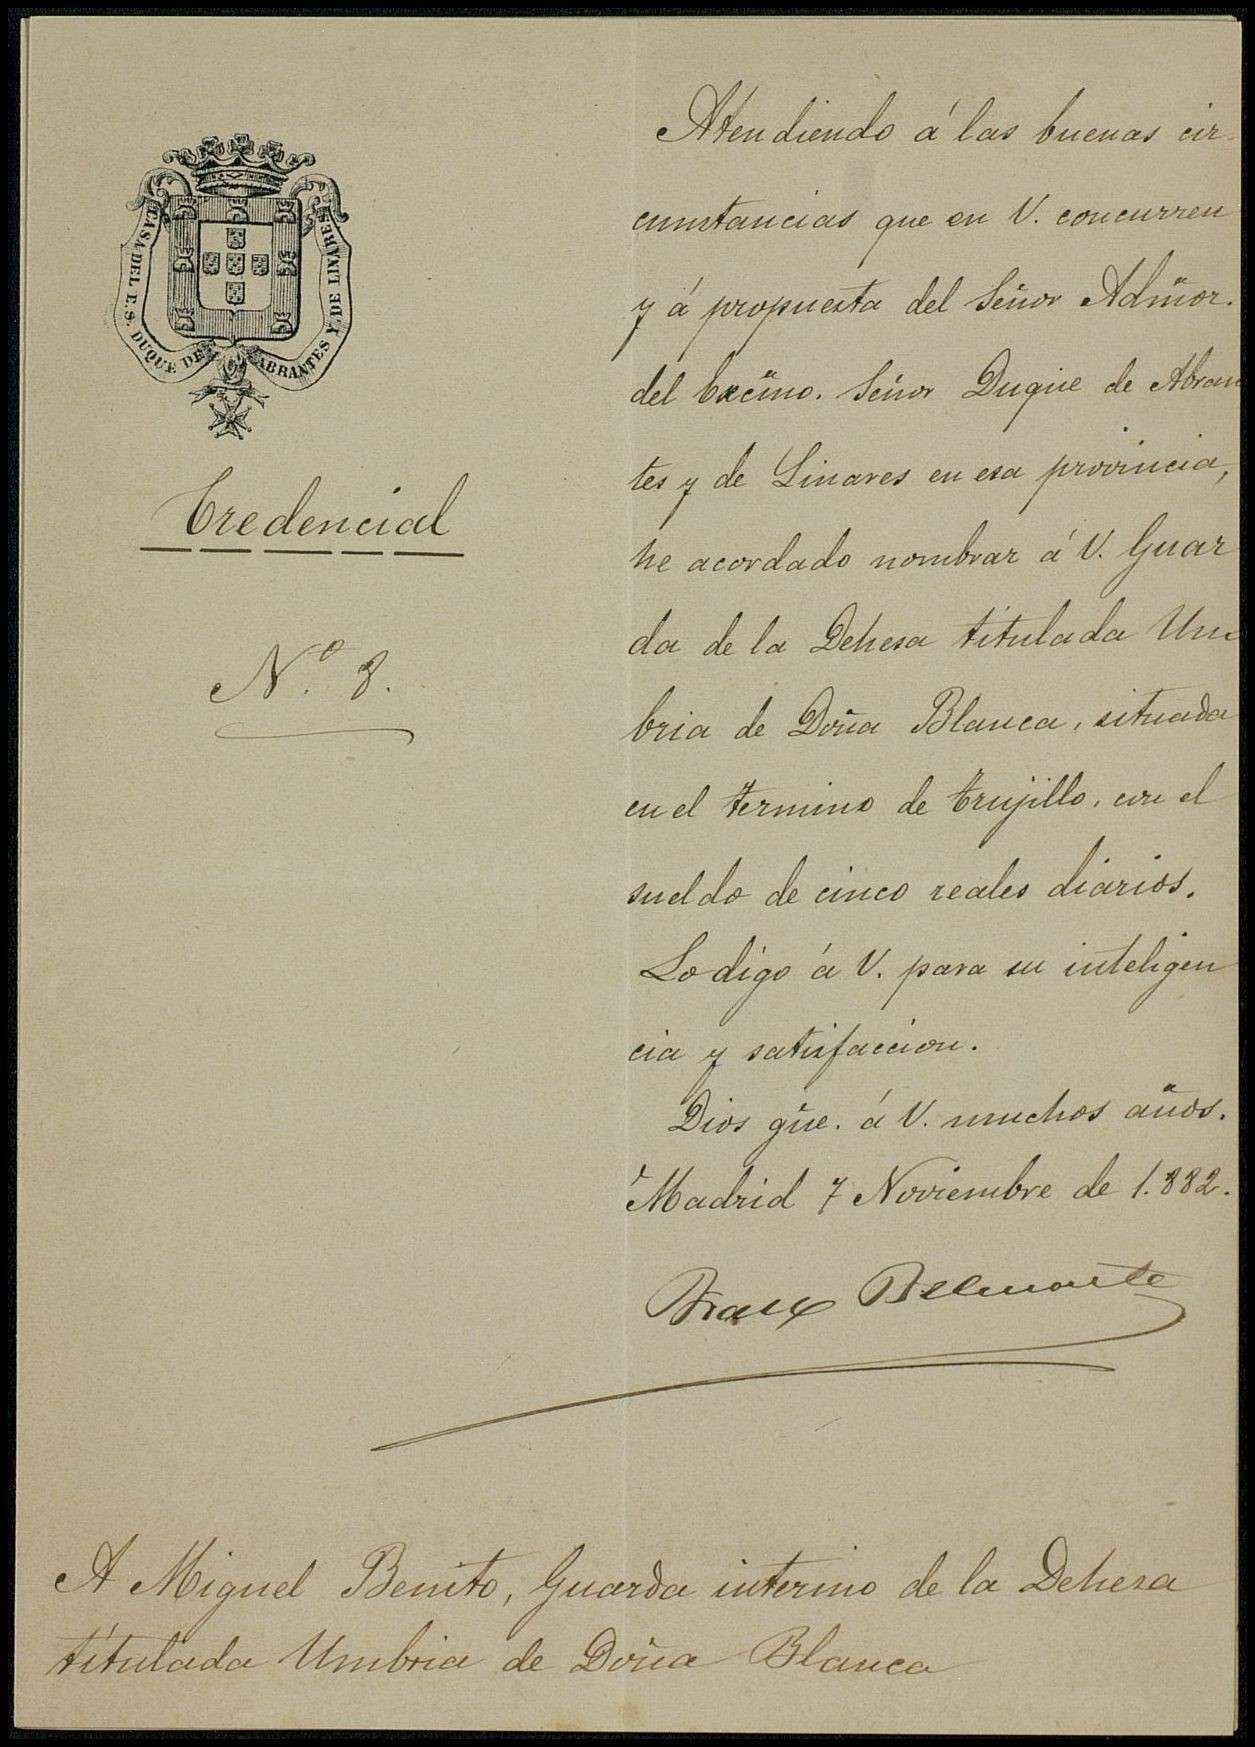 CASA DEL E.S. DUQUE DE ABRANTES Y DE LINARES
Credencial
N.º 8.
Atendiendo á las buenas cir-
cunstancias que en V. concurren
y á propuesta del Señor Admōr.
del Excm̃o. Señor Duque de Abran
tes y de Linares en esa provincia,
he acordado nombrar á V. Guar
da de la Dehesa titulada Um
bria de Doña Blanca, situada
en el termino de Trujillo, con el
sueldo de cinco reales diarios.
Lo digo á V. para su inteligen
cia y satisfaccion.
Dios gũe. á V. muchos años.
Madrid 7 Noviembre de 1.882.
Belmonte
A Miguel Benito, Guarda interino de la Dehesa
titulada Umbria de Doña Blanca